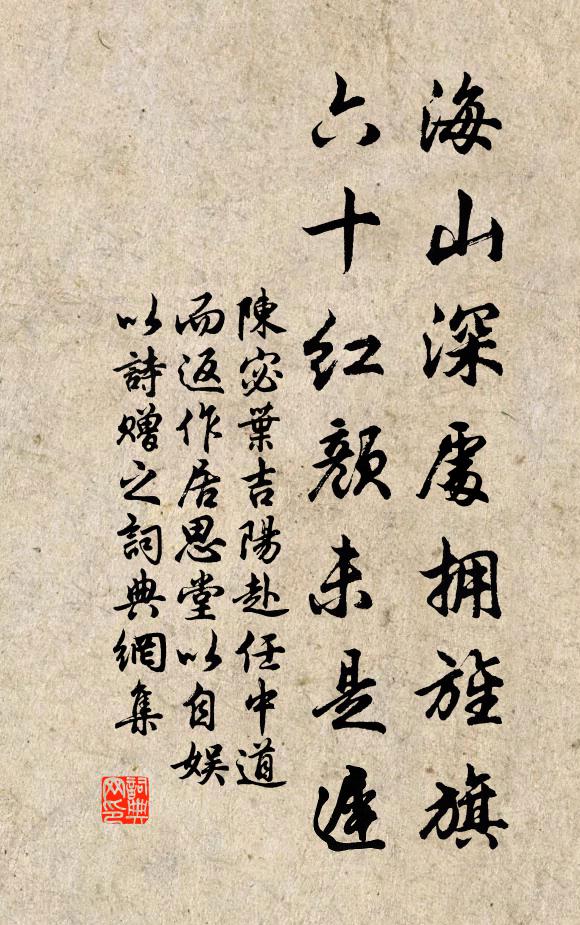 海山深處拥旌旗
六十红颜未是遲
陳宓葉吉陽赴任中道
而返作居思堂以自娱
以詩贈之詞典網集
詞典
网印